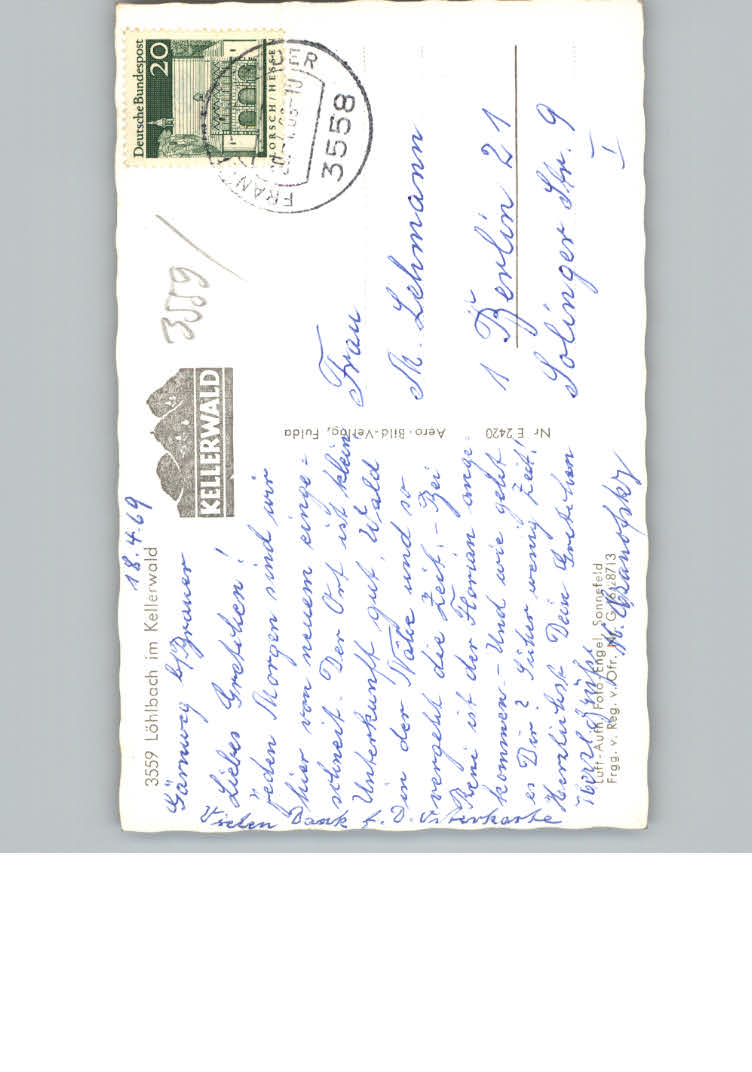 3559 Löhlbach im Kellerwald
18.4.69
b/Brauer
Liebes Gretchen!
Jeden Morgen sind wir
hier von neuem einge=
schneit. Der Ort ist klein
Unterkunft gut, Wald
in der Nähe und so
vergeht die Zeit. – Bei
Reni ist der Florian ange-
kommen. – Und wie geht
es Dir? Sicher wenig Zeit!
Herzlichst Dein Gretchen
Vielen Dank f. D. Osterkarte
KELLERWALD
Aero-Bild-Verlag, Fulda
Nr. E 2420
Luft-Aufn. Foto Engel, Sonnefeld
Frgg. v. Reg. v. Ofr. Nr. G
Deutsche Bundespost
20
LORSCH/HESSEN
3558
3559
Frau
M. Lehmann
1 Berlin 21
Solinger Str. 9
I